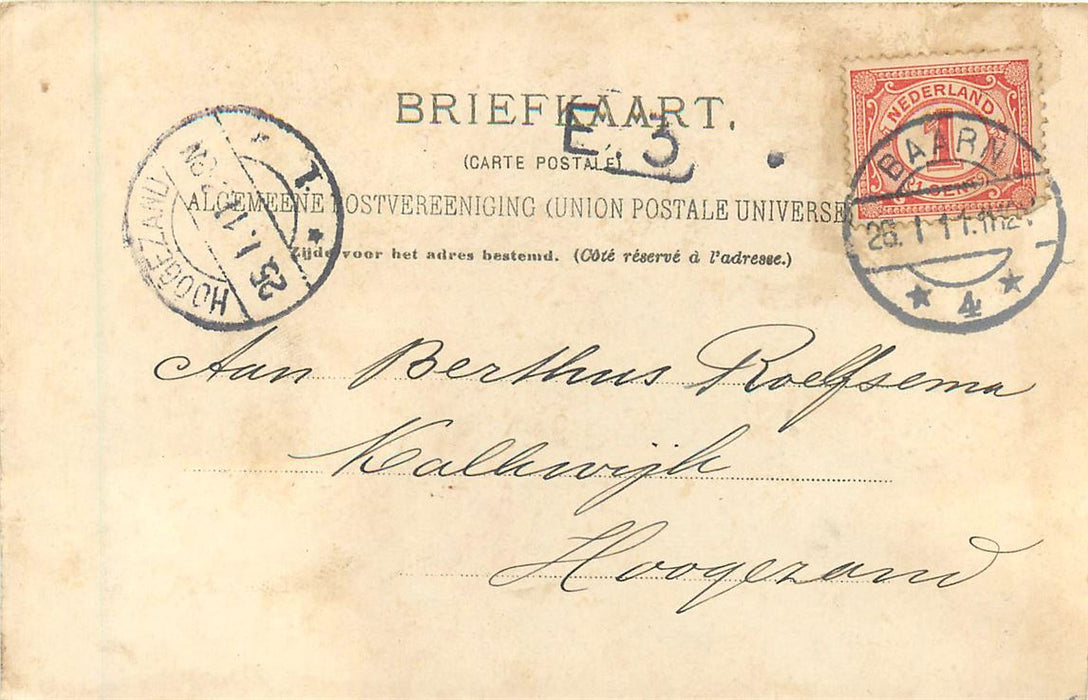 BRIEFKAART.
E. 3
(CARTE POSTALE)
ALGEMEENE POSTVEREENIGING (UNION POSTALE UNIVERSE
Zijde voor het adres bestemd. (Côté réservé à l'adresse.)
NEDERLAND
1
BAARN
26. 1 11.
4
HOOGEZAND
25. 1. 11
Aan Berthus Roelfsema
Kalkwijk
Hoogezand